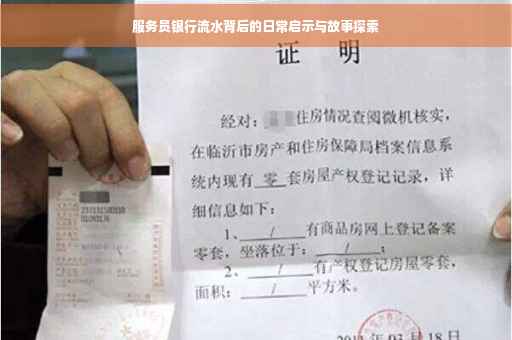 服务员银行流水背后的日常启示与故事探索
证 明
经对：住房情况查阅微机核实，
在临沂市房产和住房保障局档案信息系
统内现有 零 套房屋产权登记记录，详
细信息如下：
1、 / 有商品房网上登记备案
零套，坐落位于： / ；
2、 / 有产权登记房屋零套，
面积： / 平方米。
年 03 月 18 日